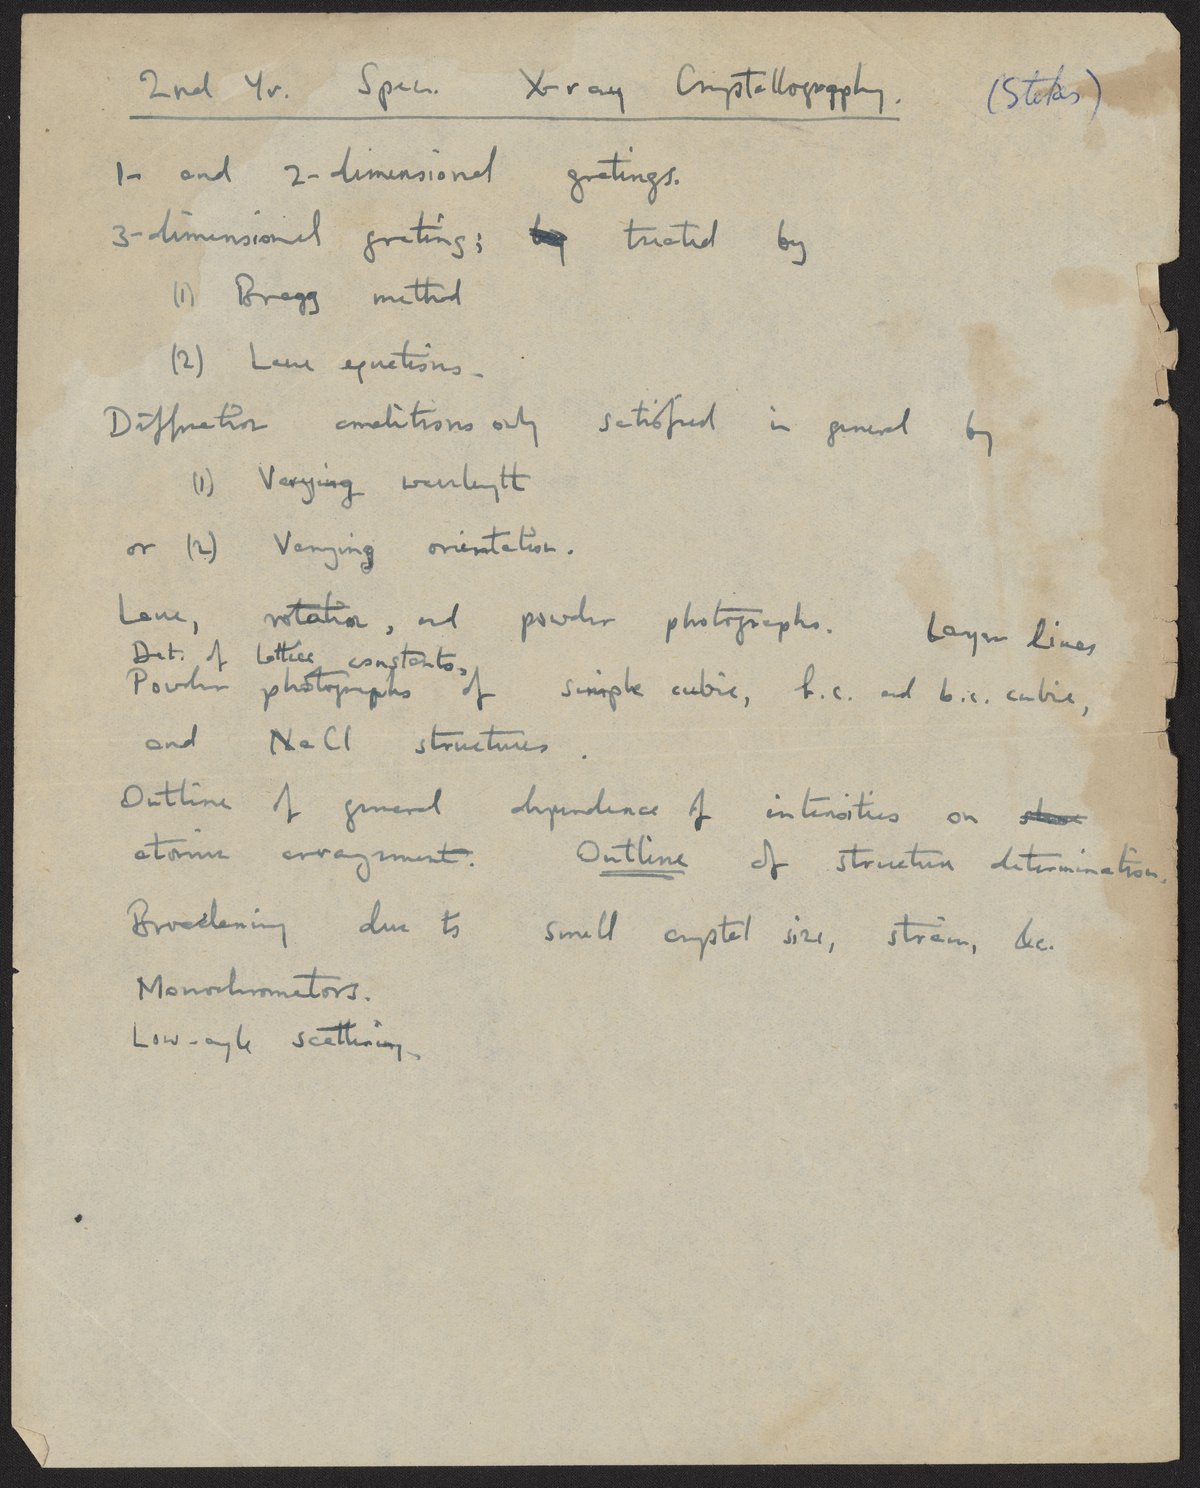 2nd Yr. Spec. X-ray Crystallography. (Stokes)
1- and 2-dimensional gratings.
3-dimensional grating; by treated by
(1) Bragg method
(2) Laue equations.
Diffraction conditions only satisfied in general by
(1) Varying wavelength
or (2) Varying orientation.
Laue, rotation, and powder photographs. Layer lines
Det. of lattice constants.
Powder photographs of simple cubic, f.c. and b.c. cubic,
and NaCl structures.
Outline of general dependence of intensities on
atomic arrangement. Outline of structure determination.
Broadening due to small crystal size, strain, &c.
Monochromators.
Low-angle scattering.